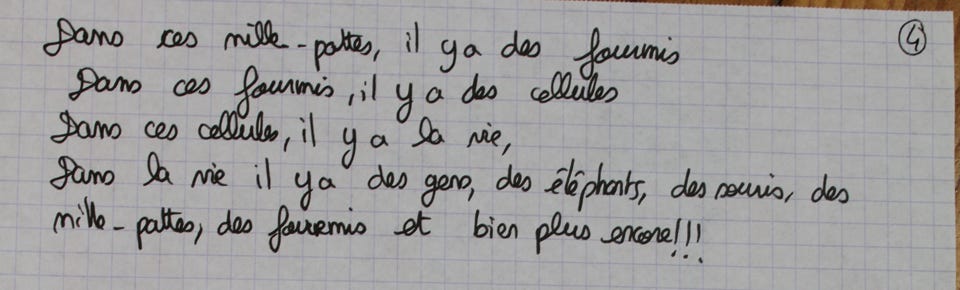 Dans ces mille-pattes, il y a des fourmis
④
Dans ces fourmis, il y a des cellules
Dans ces cellules, il y a la vie,
Dans la vie il y a des gens, des éléphants, des souris, des
mille-pattes, des fourmis et bien plus encore!!!